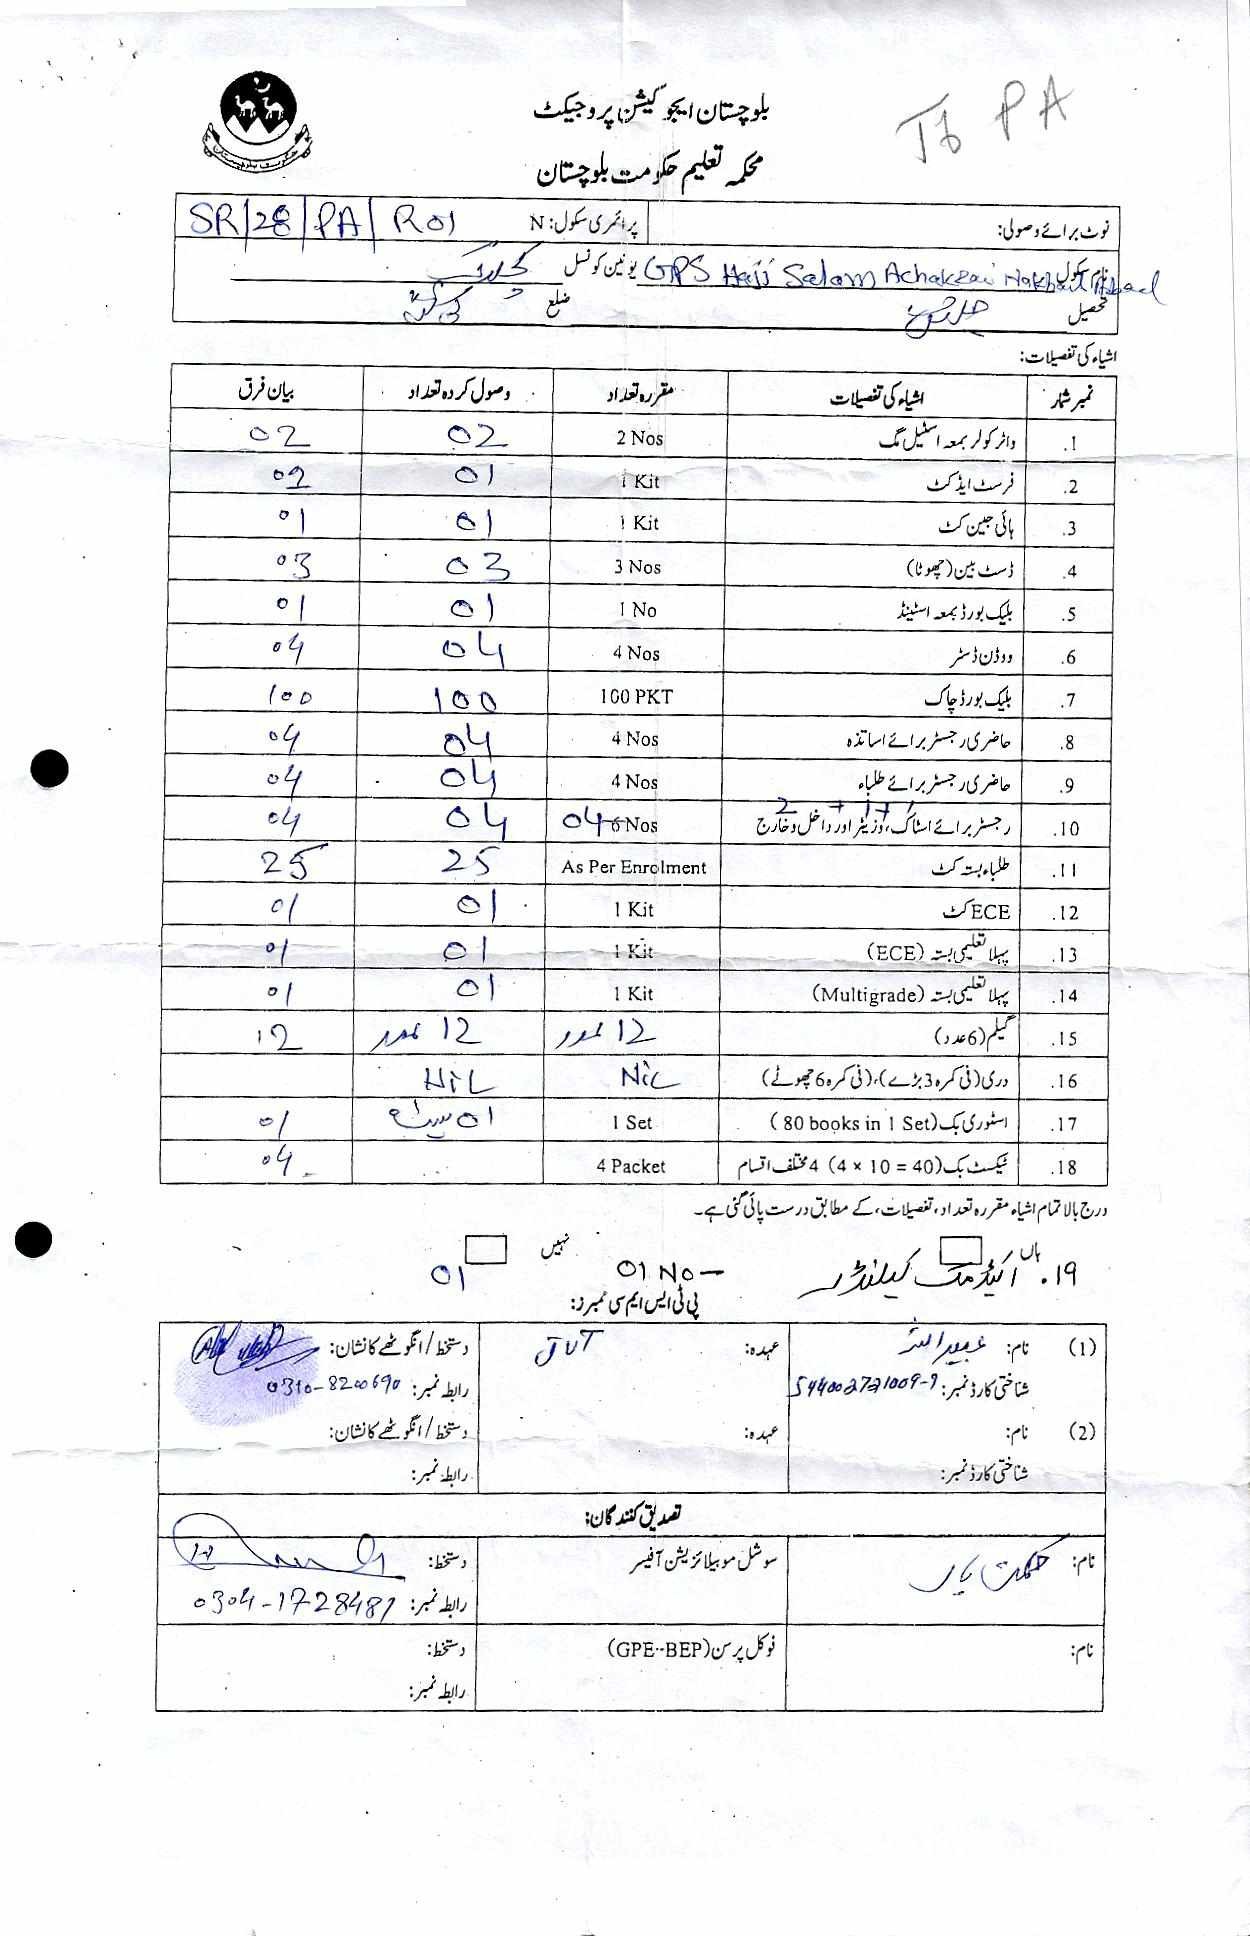 To PA
بلوچستان ایجوکیشن پروجیکٹ
محکمہ تعلیم حکومت بلوچستان
نوٹ برائے وصولی: پرائمری سکول: N SR/28/PA/R01
نام سکول GPS Haji Salam Achakzai یونین کونسل
تحصیل ضلع
اشیاء کی تفصیلات:
نمبر شمار اشیاء کی تفصیلات مقررہ تعداد وصول کردہ تعداد بیان فرق
1. واٹر کولر بمعہ اسٹیل مگ 2 Nos 02 02
2. فرسٹ ایڈ کٹ 1 Kit 01 02
3. ہائی جین کٹ 1 Kit 01 01
4. ڈسٹ بین (چھوٹا) 3 Nos 03 03
5. بلیک بورڈ بمعہ اسٹینڈ 1 No 01 01
6. ووڈن ڈسٹر 4 Nos 04 04
7. بلیک بورڈ چاک 100 PKT 100 100
8. حاضری رجسٹر برائے اساتذہ 4 Nos 04 04
9. حاضری رجسٹر برائے طلباء 4 Nos 04 04
2 + 1 + 1
10. رجسٹر برائے اسٹاک، وزیٹر اور داخل و خارج 04 6 Nos 04 04
11. طلباء بستہ کٹ As Per Enrolment 25 25
12. ECE کٹ 1 Kit 01 01
13. پہلا تعلیمی بستہ (ECE) 1 Kit 01 01
14. پہلا تعلیمی بستہ (Multigrade) 1 Kit 01 01
15. گیلم (6 عدد) 12 عدد 12 عدد 12
16. دری (فی کمرہ 3 بڑے)، (فی کمرہ 6 چھوٹے) NiL NiL
17. اسٹوری بک (80 books in 1 Set) 1 Set 01 سیٹ 01
18. ٹیکسٹ بک (4 × 10 = 40) 4 مختلف اقسام 4 Packet 04
درج بالا تمام اشیاء مقررہ تعداد، تفصیلات، کے مطابق درست پائی گئی ہے۔
ہاں نہیں
۱۹. اکیڈمک کیلنڈر 01 No 01
پی ٹی ایس ایم سی ممبرز:
(1) نام: عبیداللہ عہدہ: JVT دستخط/انگوٹھے کا نشان:
شناختی کارڈ نمبر: 544002721009-9 رابطہ نمبر: 0310-8200690
(2) نام: عہدہ: دستخط/انگوٹھے کا نشان:
شناختی کارڈ نمبر: رابطہ نمبر:
تصدیق کنندگان:
نام: حکمت یار سوشل موبیلائزیشن آفیسر دستخط:
رابطہ نمبر: 0304-1728481
نام: فوکل پرسن (GPE-BEP) دستخط:
رابطہ نمبر: